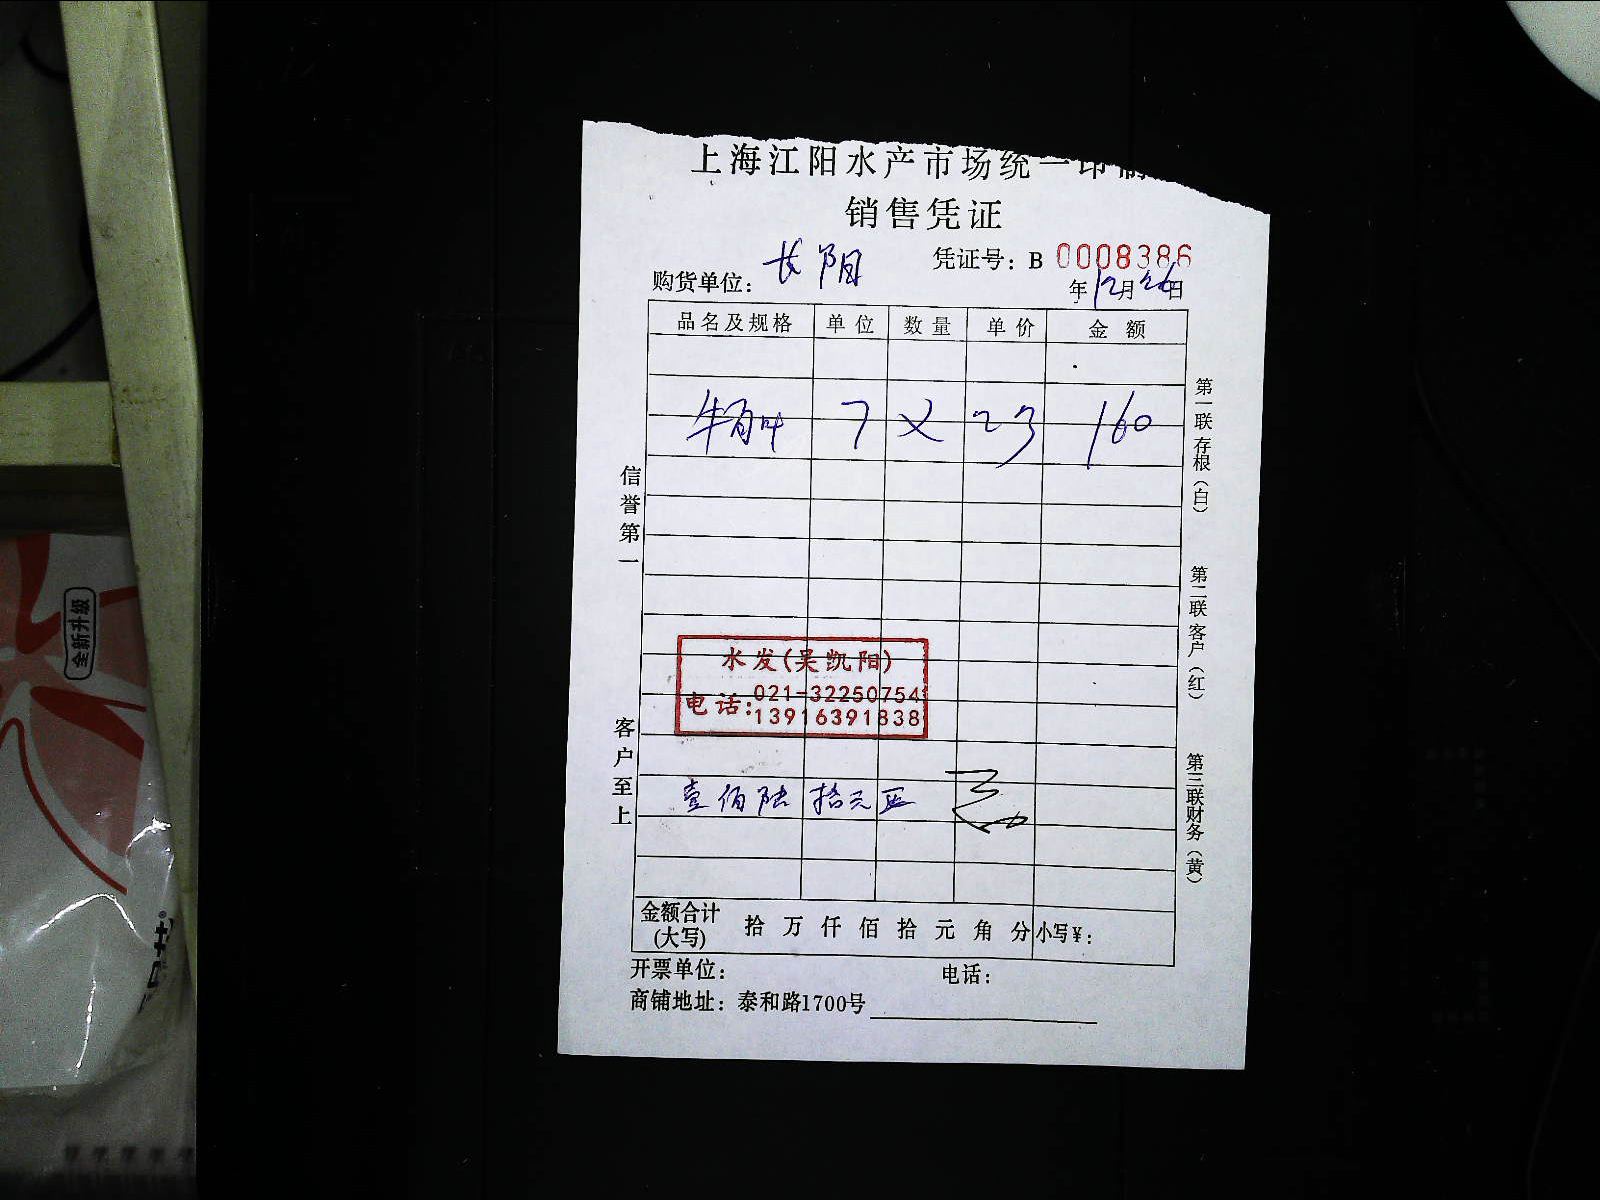 上海江阳水产市场统一印制
销售凭证
凭证号：B 0008386
购货单位： 长阳
年12月26日
品名及规格 单位 数量 单价 金额
牛百叶 7 × 23 160
水发(吴凯阳)
电话：021-32250754
13916391838
壹佰陆拾元正
金额合计(大写) 拾 万 仟 佰 拾 元 角 分 小写¥：
开票单位： 电话：
商铺地址：泰和路1700号
信誉第一
客户至上
第一联存根（白）
第二联客户（红）
第三联财务（黄）
全新升级